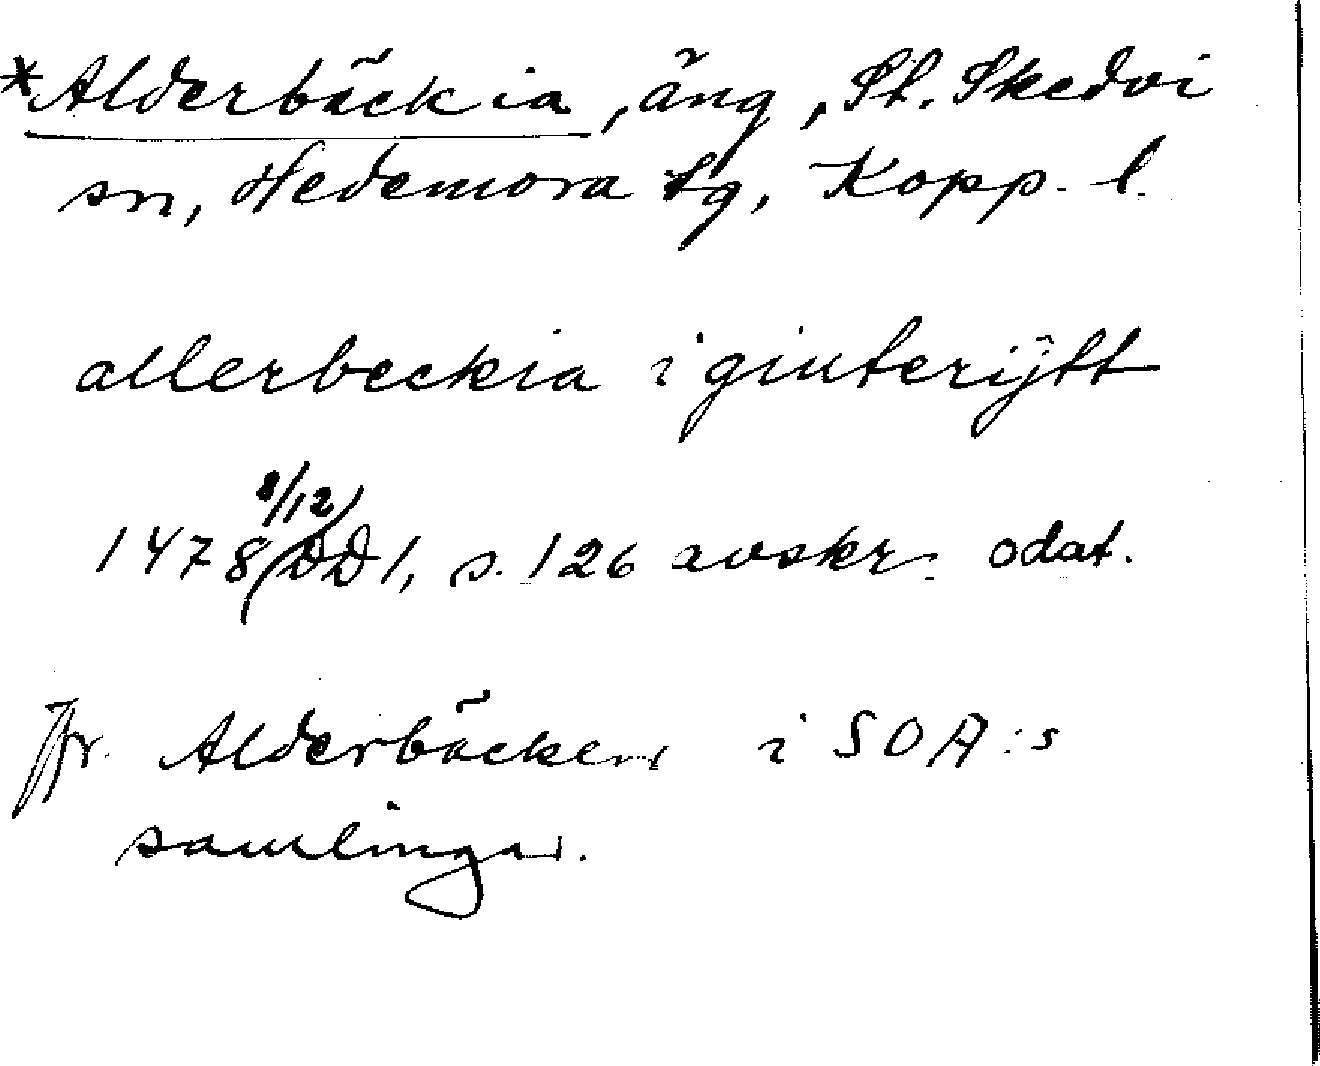 *Alderbäckia, äng, St. Skedvi
sn, Hedemora tg, Kopp. l.
allerbeckia i giuterijtt
1478 8/12 DD 1, s. 126 avskr. odat.
Jfr. Alderbäcken i SOA:s
samlingar.